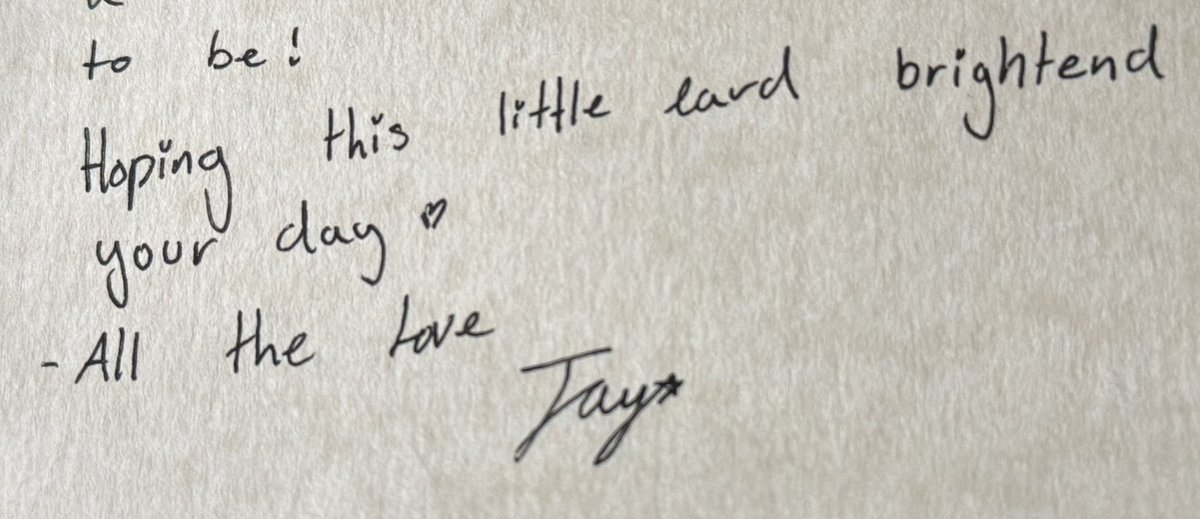 to be!
Hoping this little card brightend
your day ♡
- All the Love
Jay☆